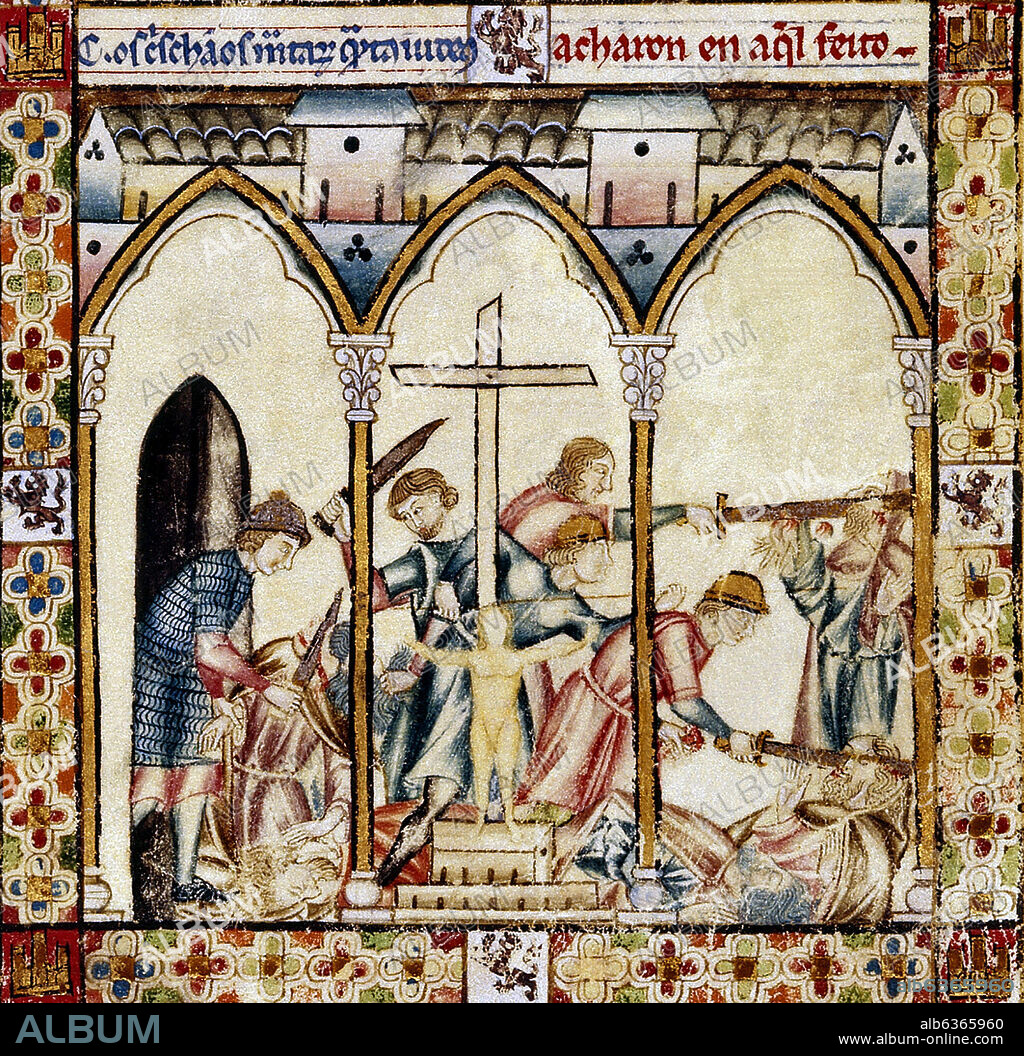 C. os c̃schãos iudeus acharon en aq̃l feito
ALBUM
alb6365960
www.album-online.com